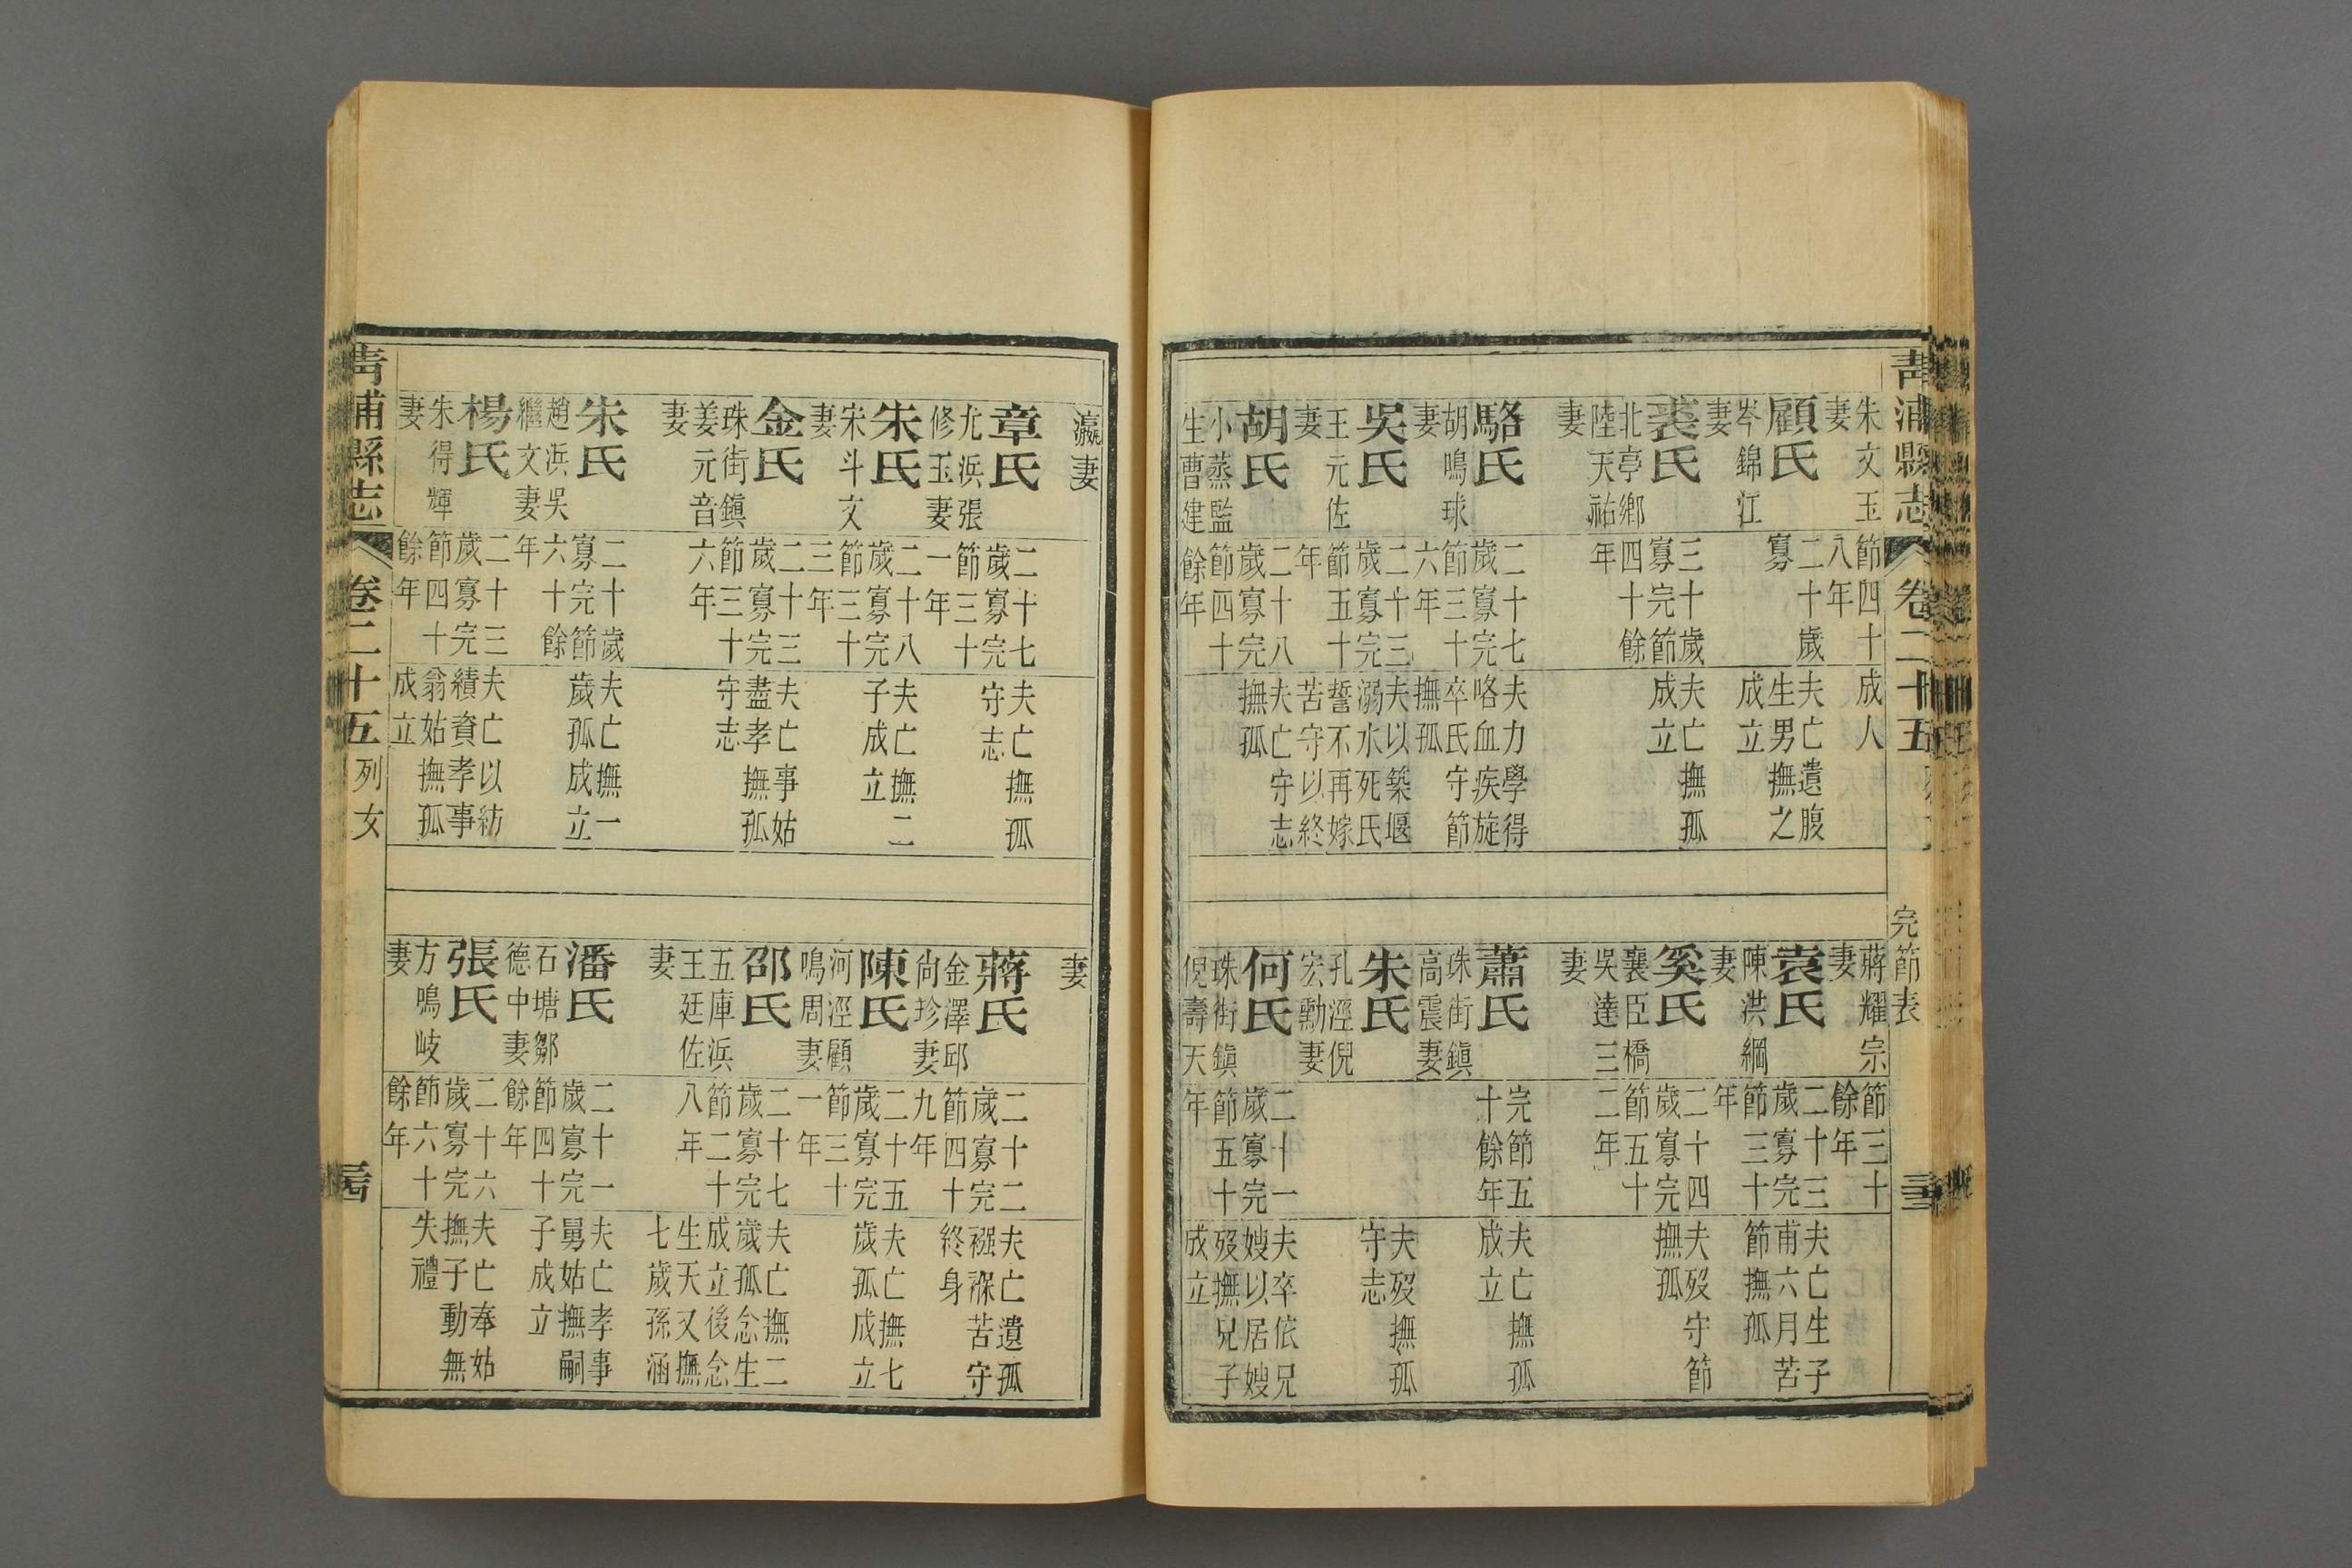 青浦縣志
卷二十五
完節表
朱文玉
妻
節四十
八年
成人
顧氏
岑錦江
妻
二十歲
寡
夫亡遺腹
生男撫之
成立
裘氏
北亭鄉
陸天祐
妻
三十歲
寡完節
四十餘
年
夫亡撫孤
成立
駱氏
胡鳴球
妻
二十七
歲寡完
節三十
六年
夫力學得
咯血疾旋
卒氏守節
撫孤
吳氏
王元佐
妻
二十三
歲寡完
節五十
年
夫以築堰
溺水死氏
誓不再嫁
苦守以終
胡氏
小蒸監
生曹建
二十八
歲寡完
節四十
餘年
夫亡守志
撫孤
蔣耀宗
妻
節三十
餘年
袁氏
陳洪綱
妻
二十三
歲寡完
節三十
年
夫亡生子
甫六月苦
節撫孤
奚氏
襄臣橋
吳達三
妻
二十四
歲寡完
節五十
二年
夫歿守節
撫孤
蕭氏
珠街鎮
高震妻
完節五
十餘年
夫亡撫孤
成立
朱氏
孔涇倪
宏勳妻
夫歿撫孤
守志
何氏
珠街鎮
倪壽天
二十一
歲寡完
節五十
年
夫卒依兄
嫂以居嫂
歿撫兄子
成立
瀛妻
章氏
尤浜張
修玉妻
二十七
歲寡完
節三十
一年
夫亡撫孤
守志
朱氏
宋斗文
妻
二十八
歲寡完
節三十
三年
夫亡撫二
子成立
金氏
珠街鎮
姜元音
妻
二十三
歲寡完
節三十
六年
夫亡事姑
盡孝撫孤
守志
朱氏
趙浜吳
繼文妻
二十歲
寡完節
六十餘
年
夫亡撫一
歲孤成立
楊氏
朱得輝
妻
二十三
歲寡完
節四十
餘年
夫亡以紡
績資孝事
翁姑撫孤
成立
妻
蔣氏
金澤邱
尙珍妻
二十二
歲寡完
節四十
九年
夫亡遺孤
襁褓苦守
終身
陳氏
河涇顧
鳴周妻
二十五
歲寡完
節三十
一年
夫亡撫七
歲孤成立
邵氏
五庫浜
王廷佐
妻
二十七
歲寡完
節二十
八年
夫亡撫二
歲孤念生
成立後念
生天又撫
七歲孫涵
潘氏
石塘鄒
德中妻
二十一
歲寡完
節四十
餘年
夫亡孝事
舅姑撫嗣
子成立
張氏
方鳴岐
妻
二十六
歲寡完
節六十
餘年
夫亡奉姑
撫子動無
失禮
青浦縣志
卷二十五
列女